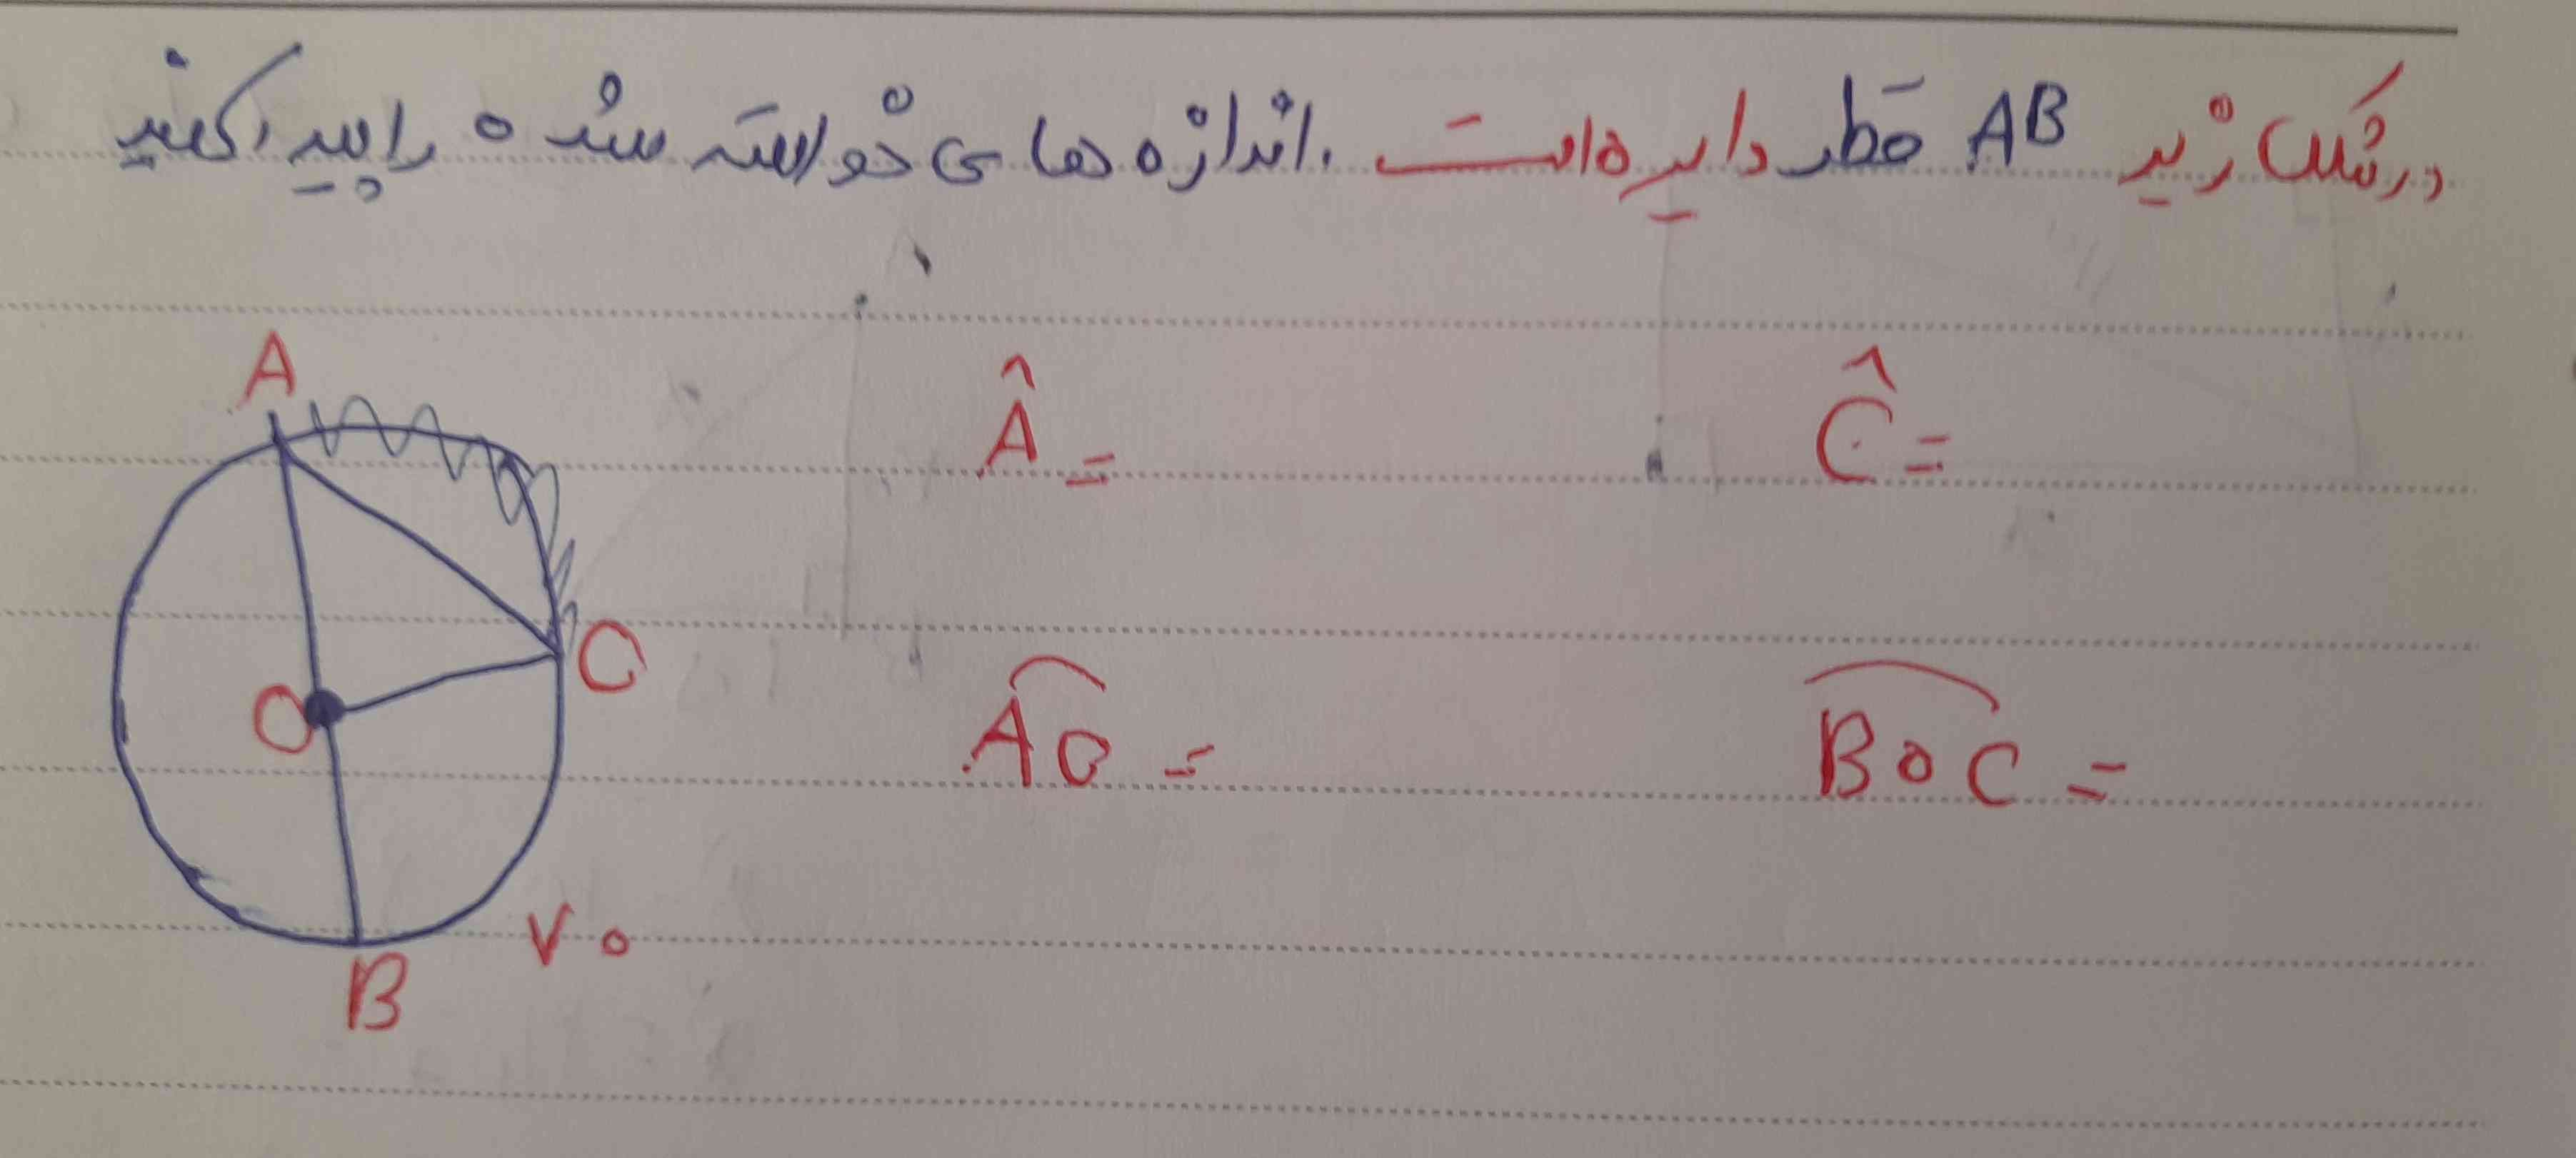 در شکل زیر AB قطر دایره است . اندازه های خواسته شده را پیدا کنید
A
Â =
Ĉ =
C
O
A͡O =
B͡OC =
۷۰
B